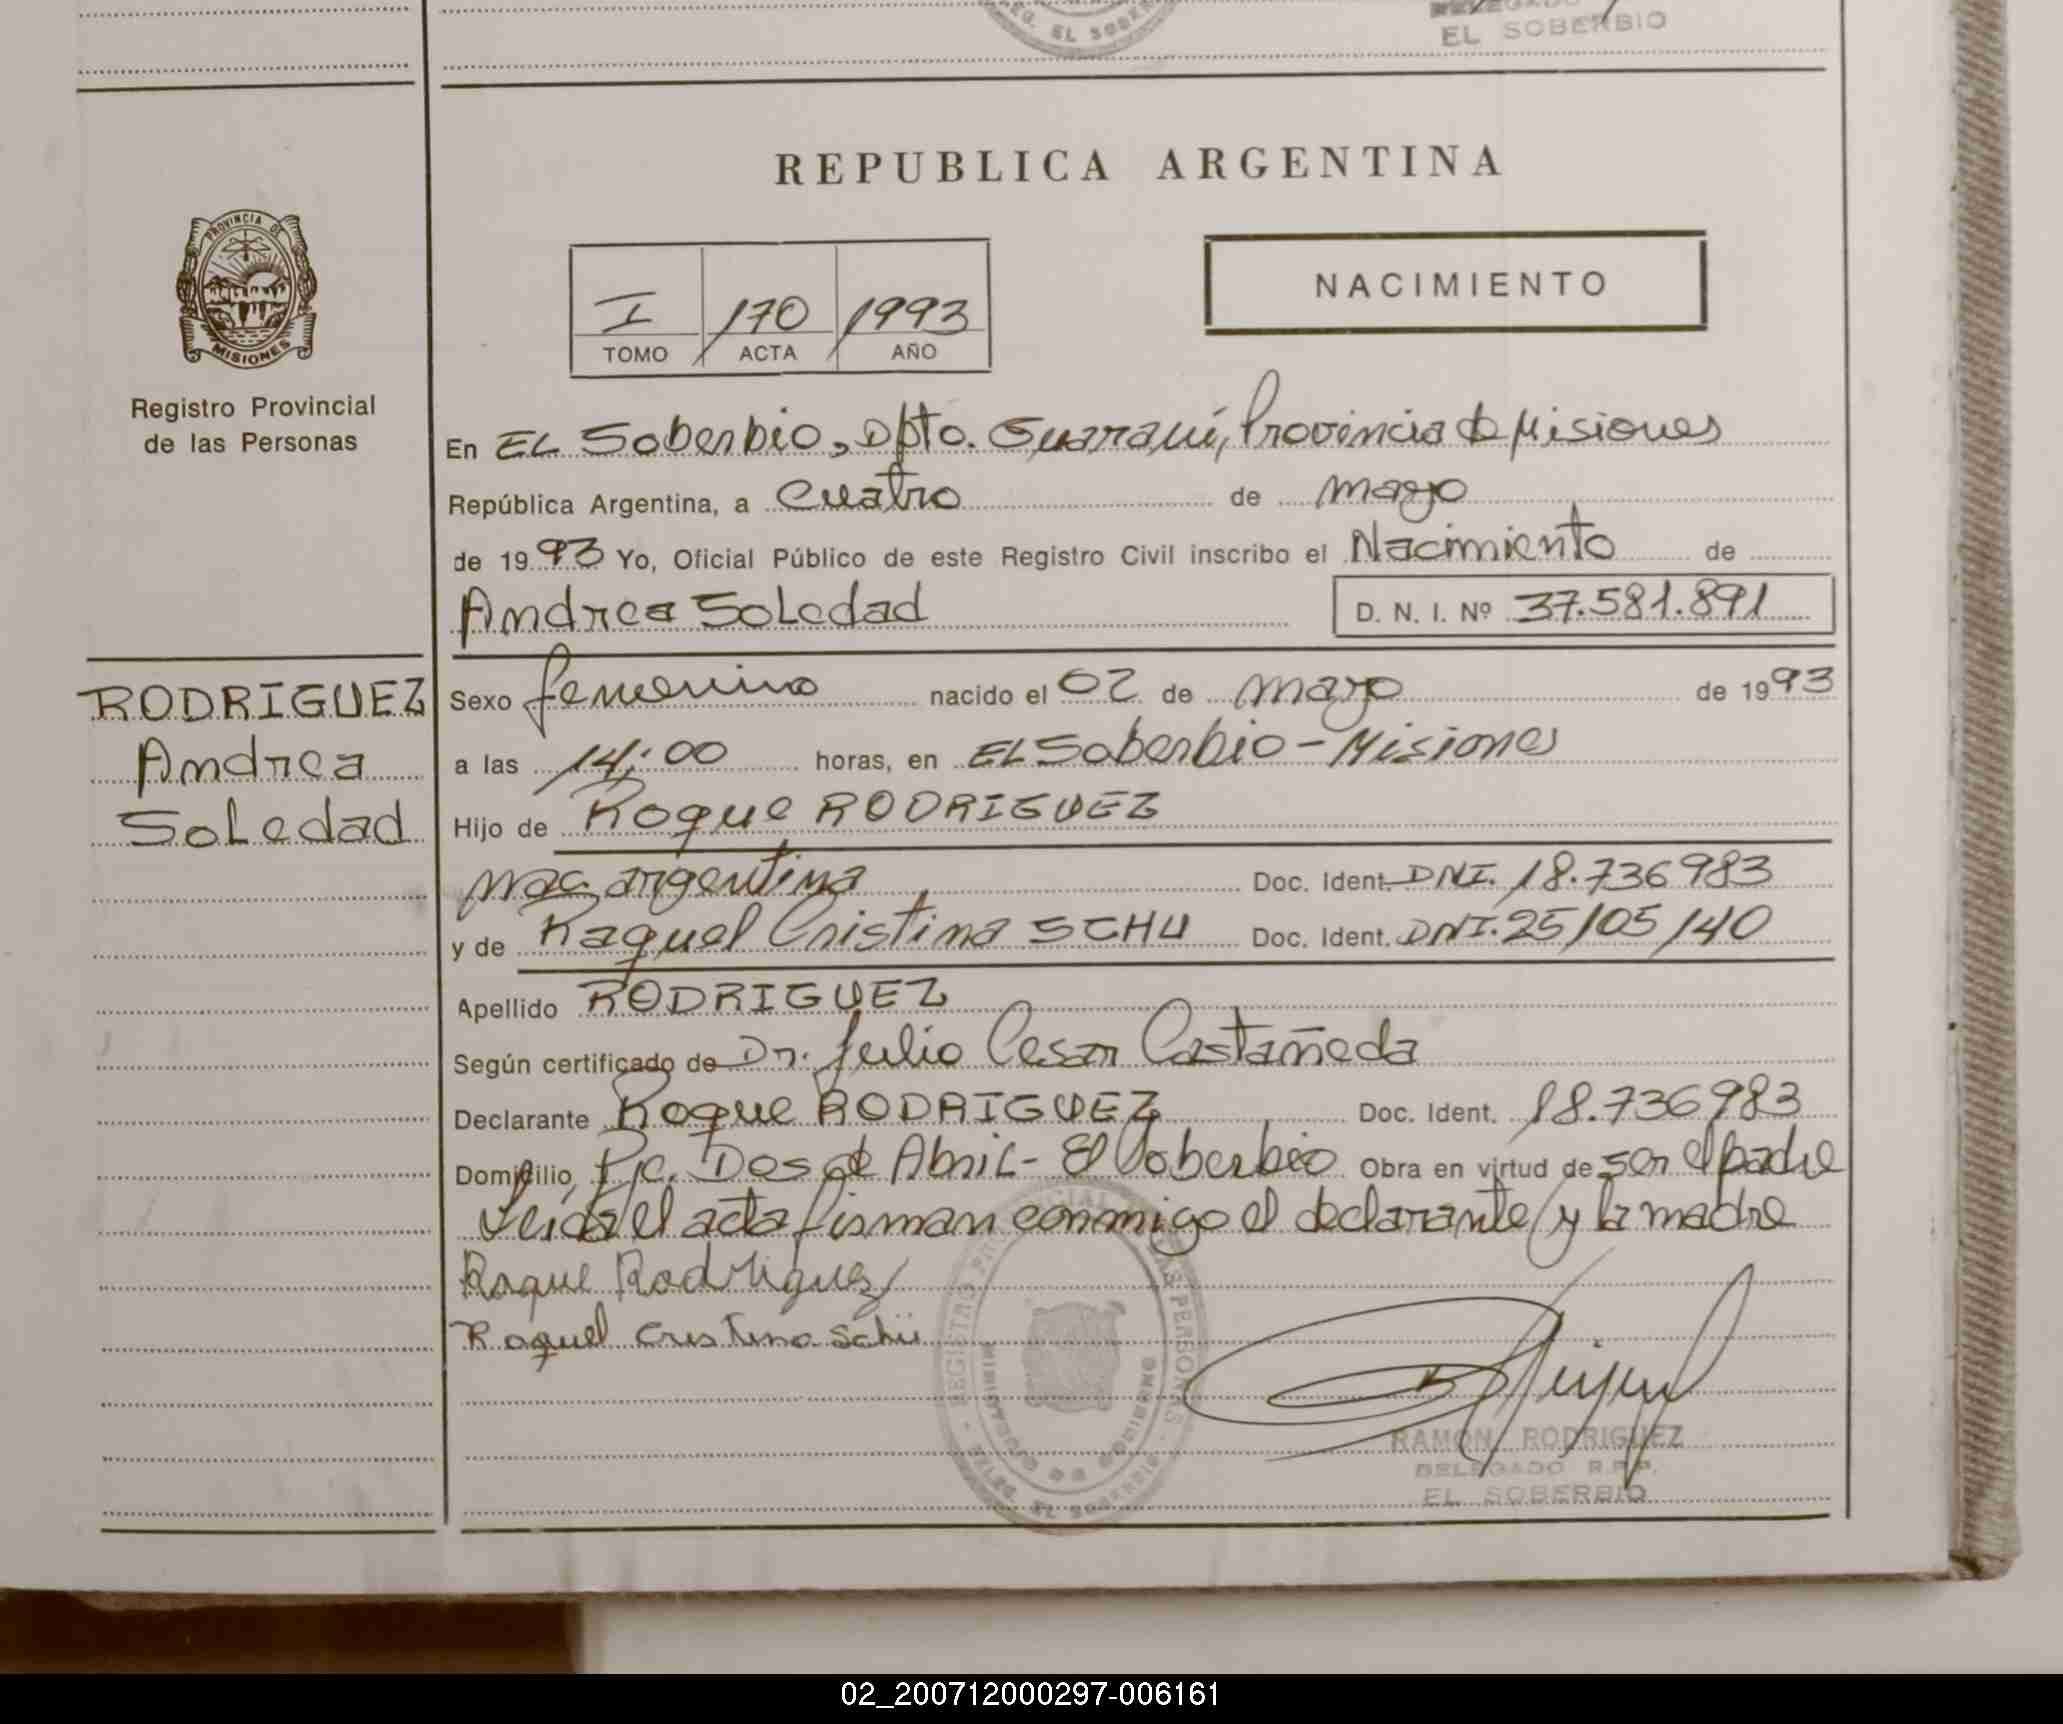 DELEGADO
EL SOBERBIO
EL SOBER
REPUBLICA ARGENTINA
PROVINCIA DE
MISIONES
Registro Provincial
de las Personas
I 170 1993
TOMO ACTA AÑO
NACIMIENTO
En EL Soberbio, Dpto. Guaraní, Provincia de Misiones
República Argentina, a Cuatro de mayo
de 1993 Yo, Oficial Público de este Registro Civil inscribo el Nacimiento de
Andrea Soledad D. N. I. Nº 37.581.891
RODRIGUEZ
Andrea
Soledad
Sexo femenino nacido el 02 de mayo de 1993
a las 14:00 horas, en EL Soberbio - Misiones
Hijo de Roque RODRIGUEZ
nac. argentina Doc. Ident. DNI. 18.736983
y de Raquel Cristina SCHU Doc. Ident. DNI. 25/05/140
Apellido RODRIGUEZ
Según certificado de Dr. Julio Cesar Castañeda
Declarante Roque RODRIGUEZ Doc. Ident. 18.736983
Domicilio, Pje. Dos de Abril - El Soberbio Obra en virtud de ser el padre
Leída el acta firman conmigo el declarante y la madre
Roque Rodriguez
Raquel Cristina Schu
RAMON RODRIGUEZ
DELEGADO R.P.P.
EL SOBERBIO
02_200712000297-006161